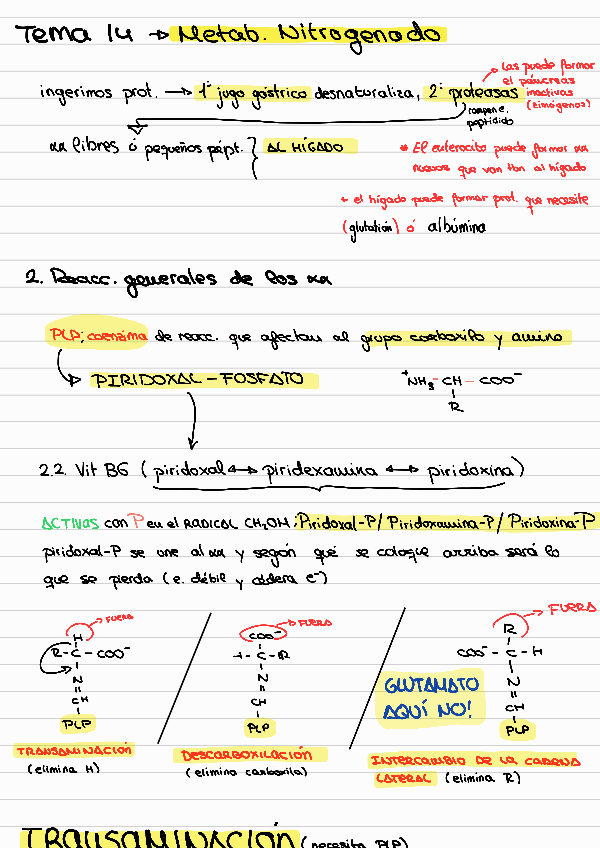 Tema 14 → Metab. Nitrogenado
ingerimos prot. → 1º jugo gástrico desnaturaliza, 2º proteasas
Las puede formar
el páncreas
inactivas
(zimógenos)
rompe e.
peptídico
aa libres ó pequeños pépt. } AL HÍGADO
* El enterocito puede formar aa
nuevos que van tbn al hígado
+ el hígado puede formar prot. que necesite
(glutatión) ó albúmina
2. Reacc. generales de los aa
PLP: coenzima de reacc. que afectan al grupo carboxilo y amino
→ PIRIDOXAL - FOSFATO
⁺NH₃ - CH - COO⁻
R
2.2. Vit B6 (piridoxal ↔ piridexamina ↔ piridoxina)
ACTIVAS con P en el RADICAL CH₂OH: Piridoxal-P / Piridoxamina-P / Piridoxina-P
piridoxal-P se une al aa y según qué se coloque arriba será lo
que se pierda (e. débil y cederá e⁻)
→ FUERA
H
R - C - COO⁻
N
CH
PLP
TRANSAMINACIÓN
(elimina H)
→ FUERA
COO⁻
H - C - R
N
CH
PLP
DESCARBOXILACIÓN
(elimina carboxilo)
→ FUERA
R
COO⁻ - C - H
N
CH
PLP
GLUTAMATO
AQUÍ NO!
INTERCAMBIO DE LA CADENA
LATERAL (elimina R)
TRANSAMINACIÓN (necesita PLP)